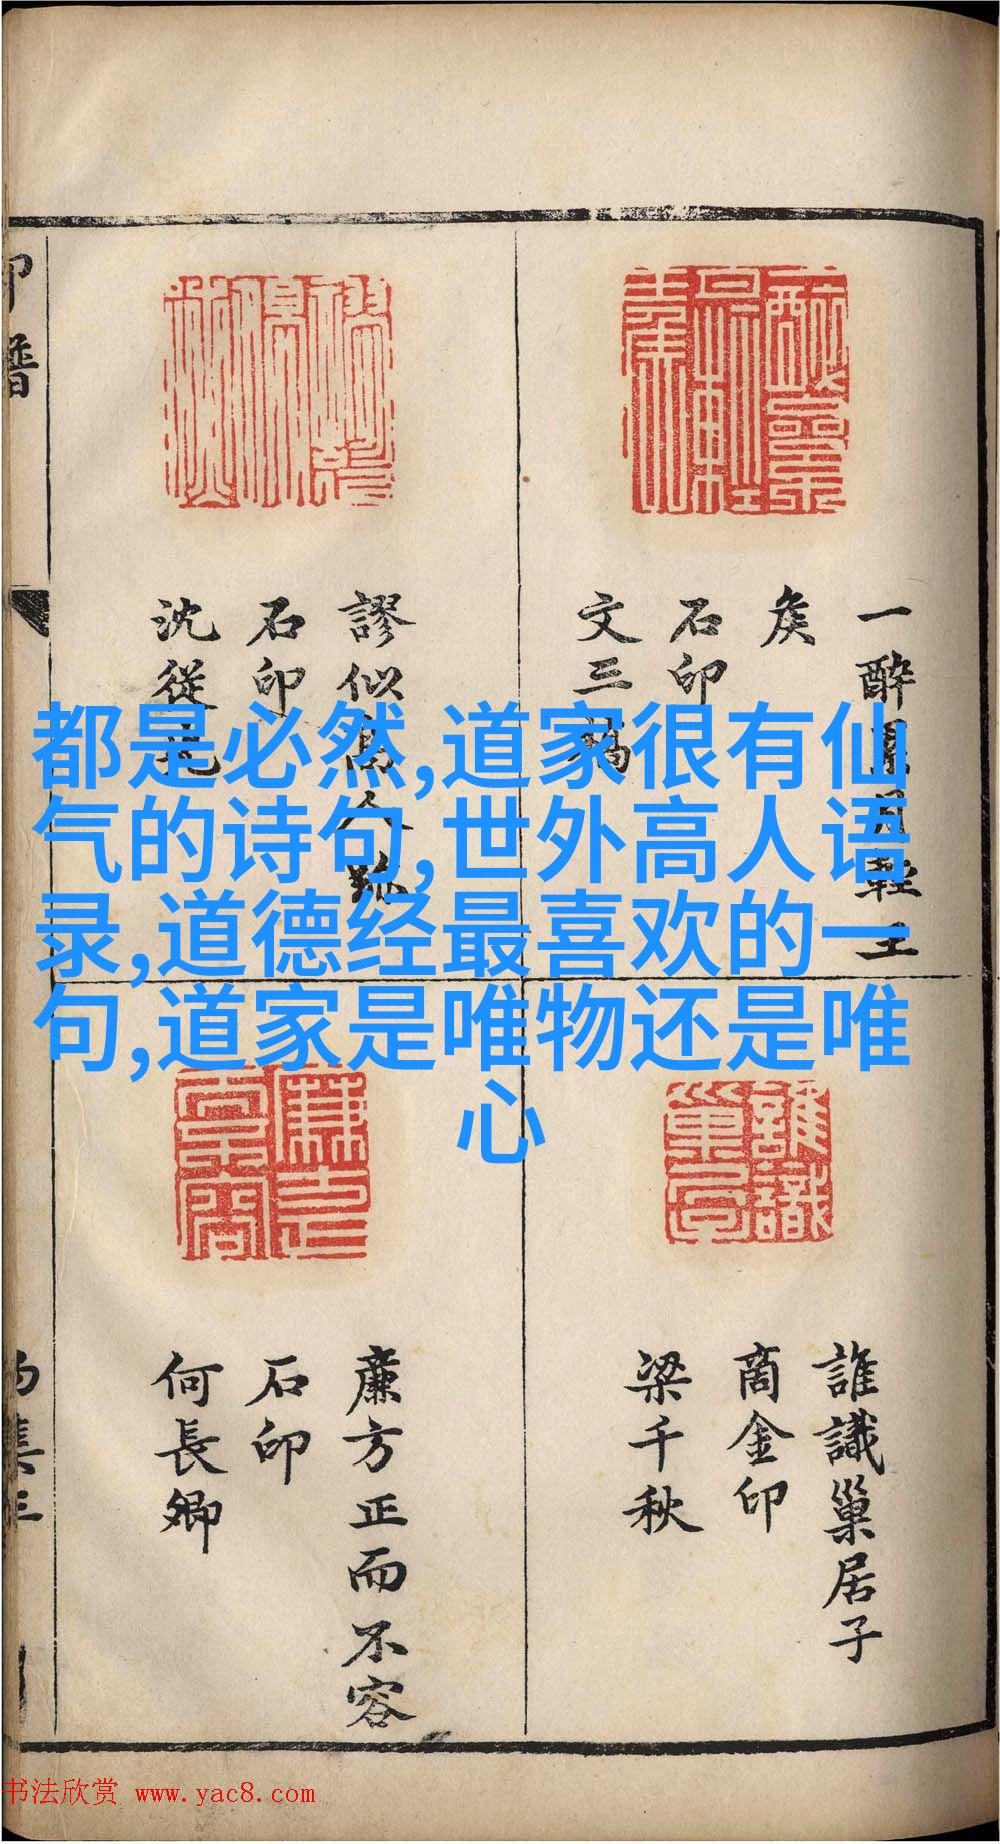 都是必然,道家很有仙
气的诗句,世外高人语
录,道德经最喜欢的一
句,道家是唯物还是唯
心
一醉累月輕王
矦
石印
文三橋
謬似高人
石印
沈從先
誰識巢居子
商金印
梁千秋
廉方正而不容
石印
何長卿
印譜
誰識
巢居
书法欣赏 www.yac8.com